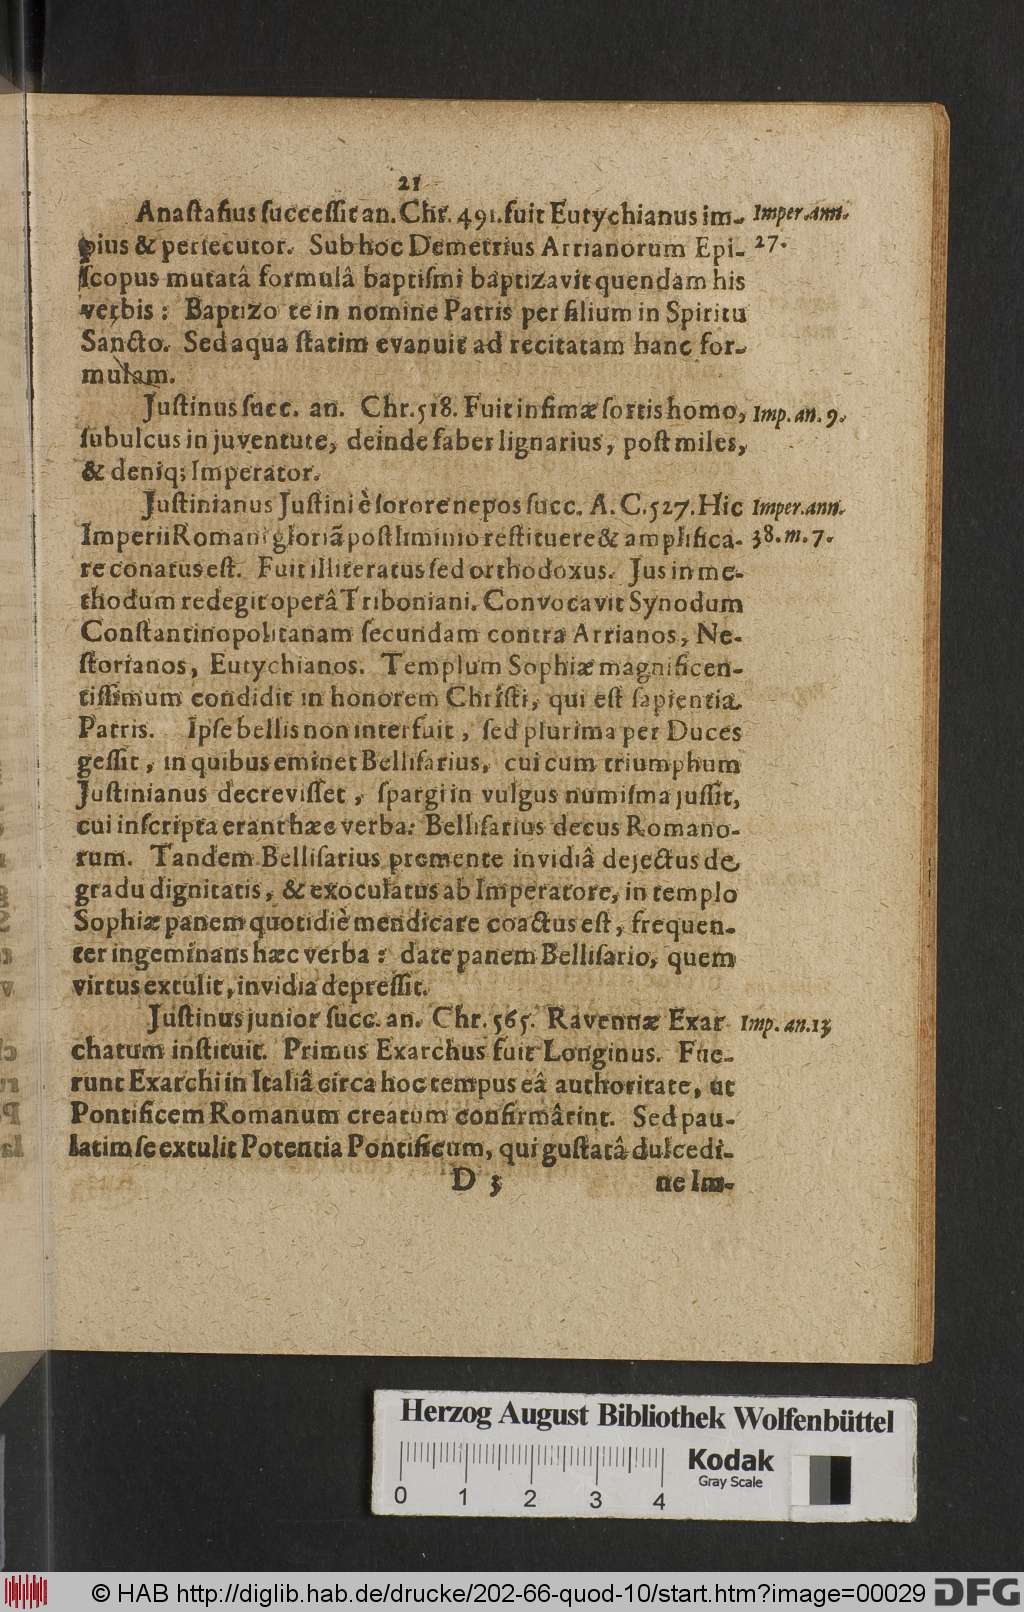 21
Anaſtaſius ſucceſſit an. Chr. 491. fuit Eutychianus im- Imper. ann.
pius & perſecutor. Sub hoc Demetrius Arrianorum Epi- 27.
ſcopus mutatâ formulâ baptiſmi baptizavit quendam his
verbis: Baptizo te in nomine Patris per filium in Spiritu
Sancto. Sed aqua ſtatim evanuit ad recitatam hanc for-
mulam.
Juſtinus ſucc. an. Chr. 518. Fuit infimæ ſortis homo, Imp. an. 9.
ſubulcus in juventute, deinde faber lignarius, poſt miles,
& deniq; Imperator.
Juſtinianus Juſtini è ſorore nepos ſucc. A. C. 527. Hic Imper. ann.
Imperii Romani gloriã poſtliminio reſtituere & amplifica- 38. m. 7.
re conatus eſt. Fuit illiteratus ſed orthodoxus. Jus in me-
thodum redegit operâ Triboniani. Convocavit Synodum
Conſtantinopolitanam ſecundam contra Arrianos, Ne-
ſtorianos, Eutychianos. Templum Sophiæ magnificen-
tiſſimum condidit in honorem Chriſti, qui eſt ſapientia
Patris. Ipſe bellis non interfuit, ſed plurima per Duces
geſſit, in quibus eminet Belliſarius, cui cum triumphum
Juſtinianus decreviſſet, ſpargi in vulgus numiſma juſſit,
cui inſcripta erant hæc verba: Belliſarius decus Romano-
rum. Tandem Belliſarius premente invidiâ dejectus de
gradu dignitatis, & exoculatus ab Imperatore, in templo
Sophiæ panem quotidiè mendicare coactus eſt, frequen-
ter ingeminans hæc verba: date panem Belliſario, quem
virtus extulit, invidia depreſſit.
Juſtinus junior ſucc. an. Chr. 565. Ravennæ Exar- Imp. an. 13
chatum inſtituit. Primus Exarchus fuit Longinus. Fue-
runt Exarchi in Italiâ circa hoc tempus eâ authoritate, ut
Pontificem Romanum creatum confirmârint. Sed pau-
latim ſe extulit Potentia Pontificum, qui guſtatâ dulcedi-
D 3 ne Im-
Herzog August Bibliothek Wolfenbüttel
Kodak
Gray Scale
0 1 2 3 4
© HAB http://diglib.hab.de/drucke/202-66-quod-10/start.htm?image=00029 DFG